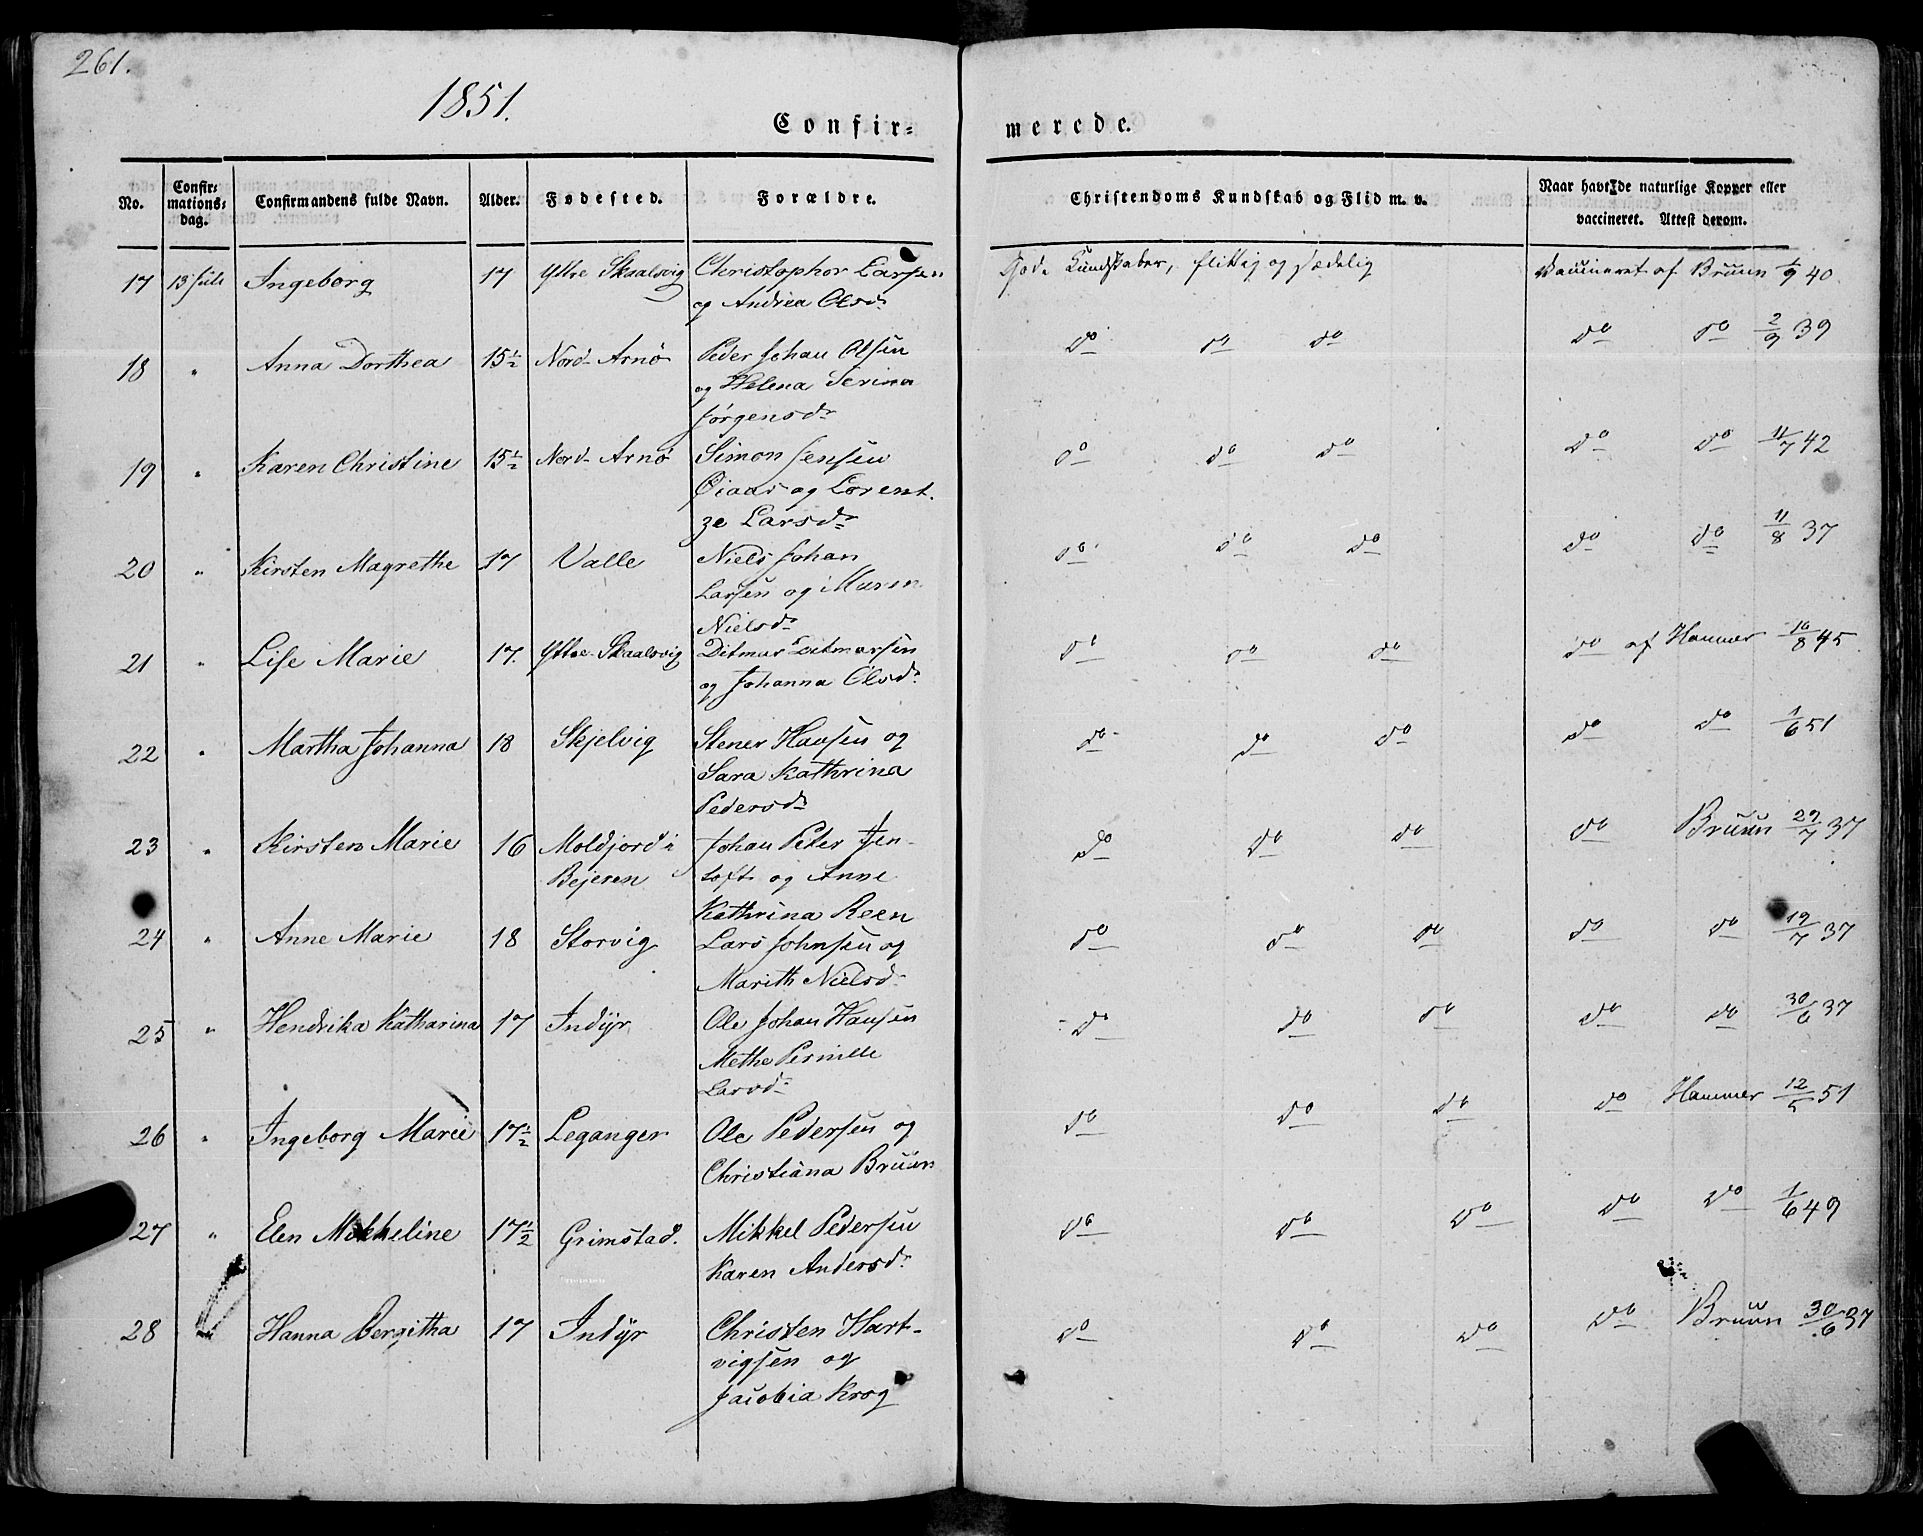 261.
1851.
Confir=
merede.
No.
Confir=
mations=
dag.
Confirmandens fulde Navn.
Alder.
Fødested.
Forældre.
Christendoms Kundskab og Flid m. v.
Naar havt de naturlige Kopper eller
vaccineret. Attest derom.
17 13 Juli Ingeborg 17 Yttre Skaalsvig Christopher Larsen Gode Kundskaber, flittig og sædelig Vaccineret af Bruun 1/9 40.
og Andrea Olsdr
18 " Anna Dorthea 15½ Nord-Arnø Peder Johan Olsen do do do do do 2/9 39
og Helena Serina
Jørgensdr
19 " Karen Christine 15½ Nord-Arnø Simon Jensen do do do do do 11/7 42
Øiaas og Lorent-
ze Larsdr
20 " Kirsten Magrethe 17 Valle Niels Johan do do do do do 11/8 37
Larsen og Maren
Nielsdr
21 " Lise Marie 17. Yttre-Skaalsvig Ditmar Ditmarsen do do do do af Hammer 10/8 45.
og Johanna Olsdr
22 " Martha Johanna 18 Skjelvig Stener Hansen og do do do do do 1/6 51
Sara Kathrina
Pedersdr
23 " Kirsten Marie 16 Moldjord i Johan Peter Jen- do do do do Bruun 29/7 37
Bejeren toft og Anne
Kathrina Reen
24 " Anne Marie 18 Storvig Lars Johnsen og do do do do do 19/7 37
Marith Nielsd
25 " Hendrika Katharina 17 Indyr Ole Johan Hansen do do do do do 30/6 37
Methe Pernille
Larsdr
26 " Ingeborg Marie 17½ Leganger Ole Pedersen og do do do do Hammer 12/5 51
Christiana Bruun
27 " Elen Mikkeline 17½ Grimstad. Mikkel Pedersen do do do do do 1/6 49
Karen Andersdr
28 Hanna Bergitha 17 Indyr Christen Hart- do do do do Bruun 30/6 37
vigsen og
Jacobia Krog